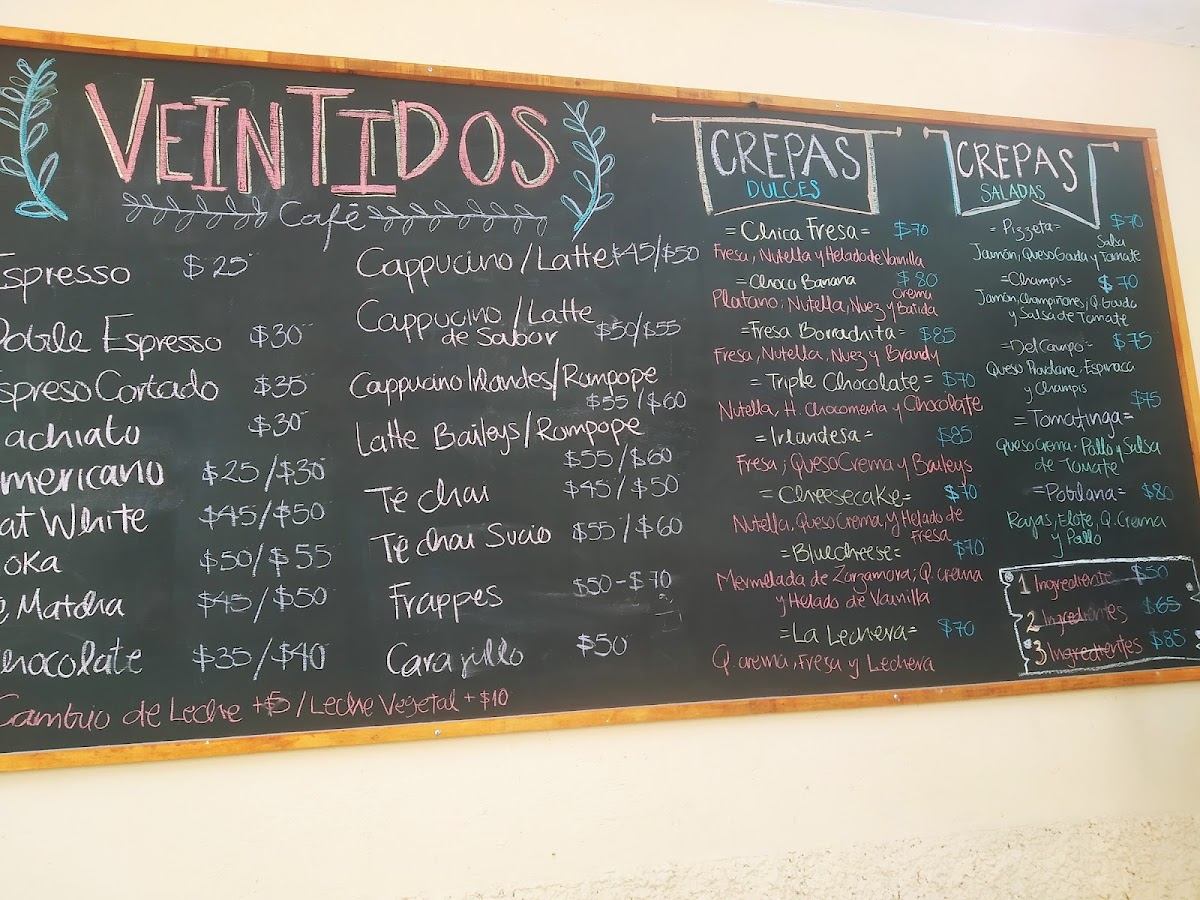 VEINTIDOS
Café
Espresso $25
Doble Espresso $30
EspresoCortado $35
achiato $30
mericano $25/$30
at White $45/$50
oka $50/$55
é Matcha $45/$50
hocolate $35/$40
Cambio de Leche +$5/Leche Vegetal +$10
Cappucino/Latte $45/$50
Cappucino/Latte
de Sabor $50/$55
Cappucino Irlandes/Rompope
$55/$60
Latte Baileys/Rompope
$55/$60
Té chai $45/$50
Té chai Sucio $55/$60
Frappes $50-$70
Carajillo $50
CREPAS
DULCES
=Chica Fresa= $70
Fresa, Nutella y Helado de Vainilla
=Choco Banana $80
Crema
Platano, Nutella, Nuez y Batida
=Fresa Borrachita= $85
Fresa, Nutella, Nuez y Brandy
=Triple Chocolate= $70
Nutella, H. Chocomenta y Chocolate
=Irlandesa= $85
Fresa, Queso Crema y Baileys
=Cheesecake= $70
Nutella, Queso Crema, y Helado de
Fresa
=Bluecheese= $70
Mermelada de Zarzamora, Q. crema
y Helado de Vainilla
=La Lechera= $70
Q. crema, Fresa y Lechera
CREPAS
SALADAS
=Pizzeta= $70
Salsa
Jamón, Queso Gouda y Tomate
=Champis= $70
Jamón, Champiñones, Q. Gouda
y Salsa de Tomate
=Del Campo= $75
Queso Philadelphia, Espinaca
y Champis
$75
=Tomatinga=
Queso Crema, Pollo y Salsa
de Tomate
=Poblana= $80
Rajas, Elote, Q. Crema
y Pollo
1 Ingrediente $50
2 Ingredientes $65
3 Ingredientes $85